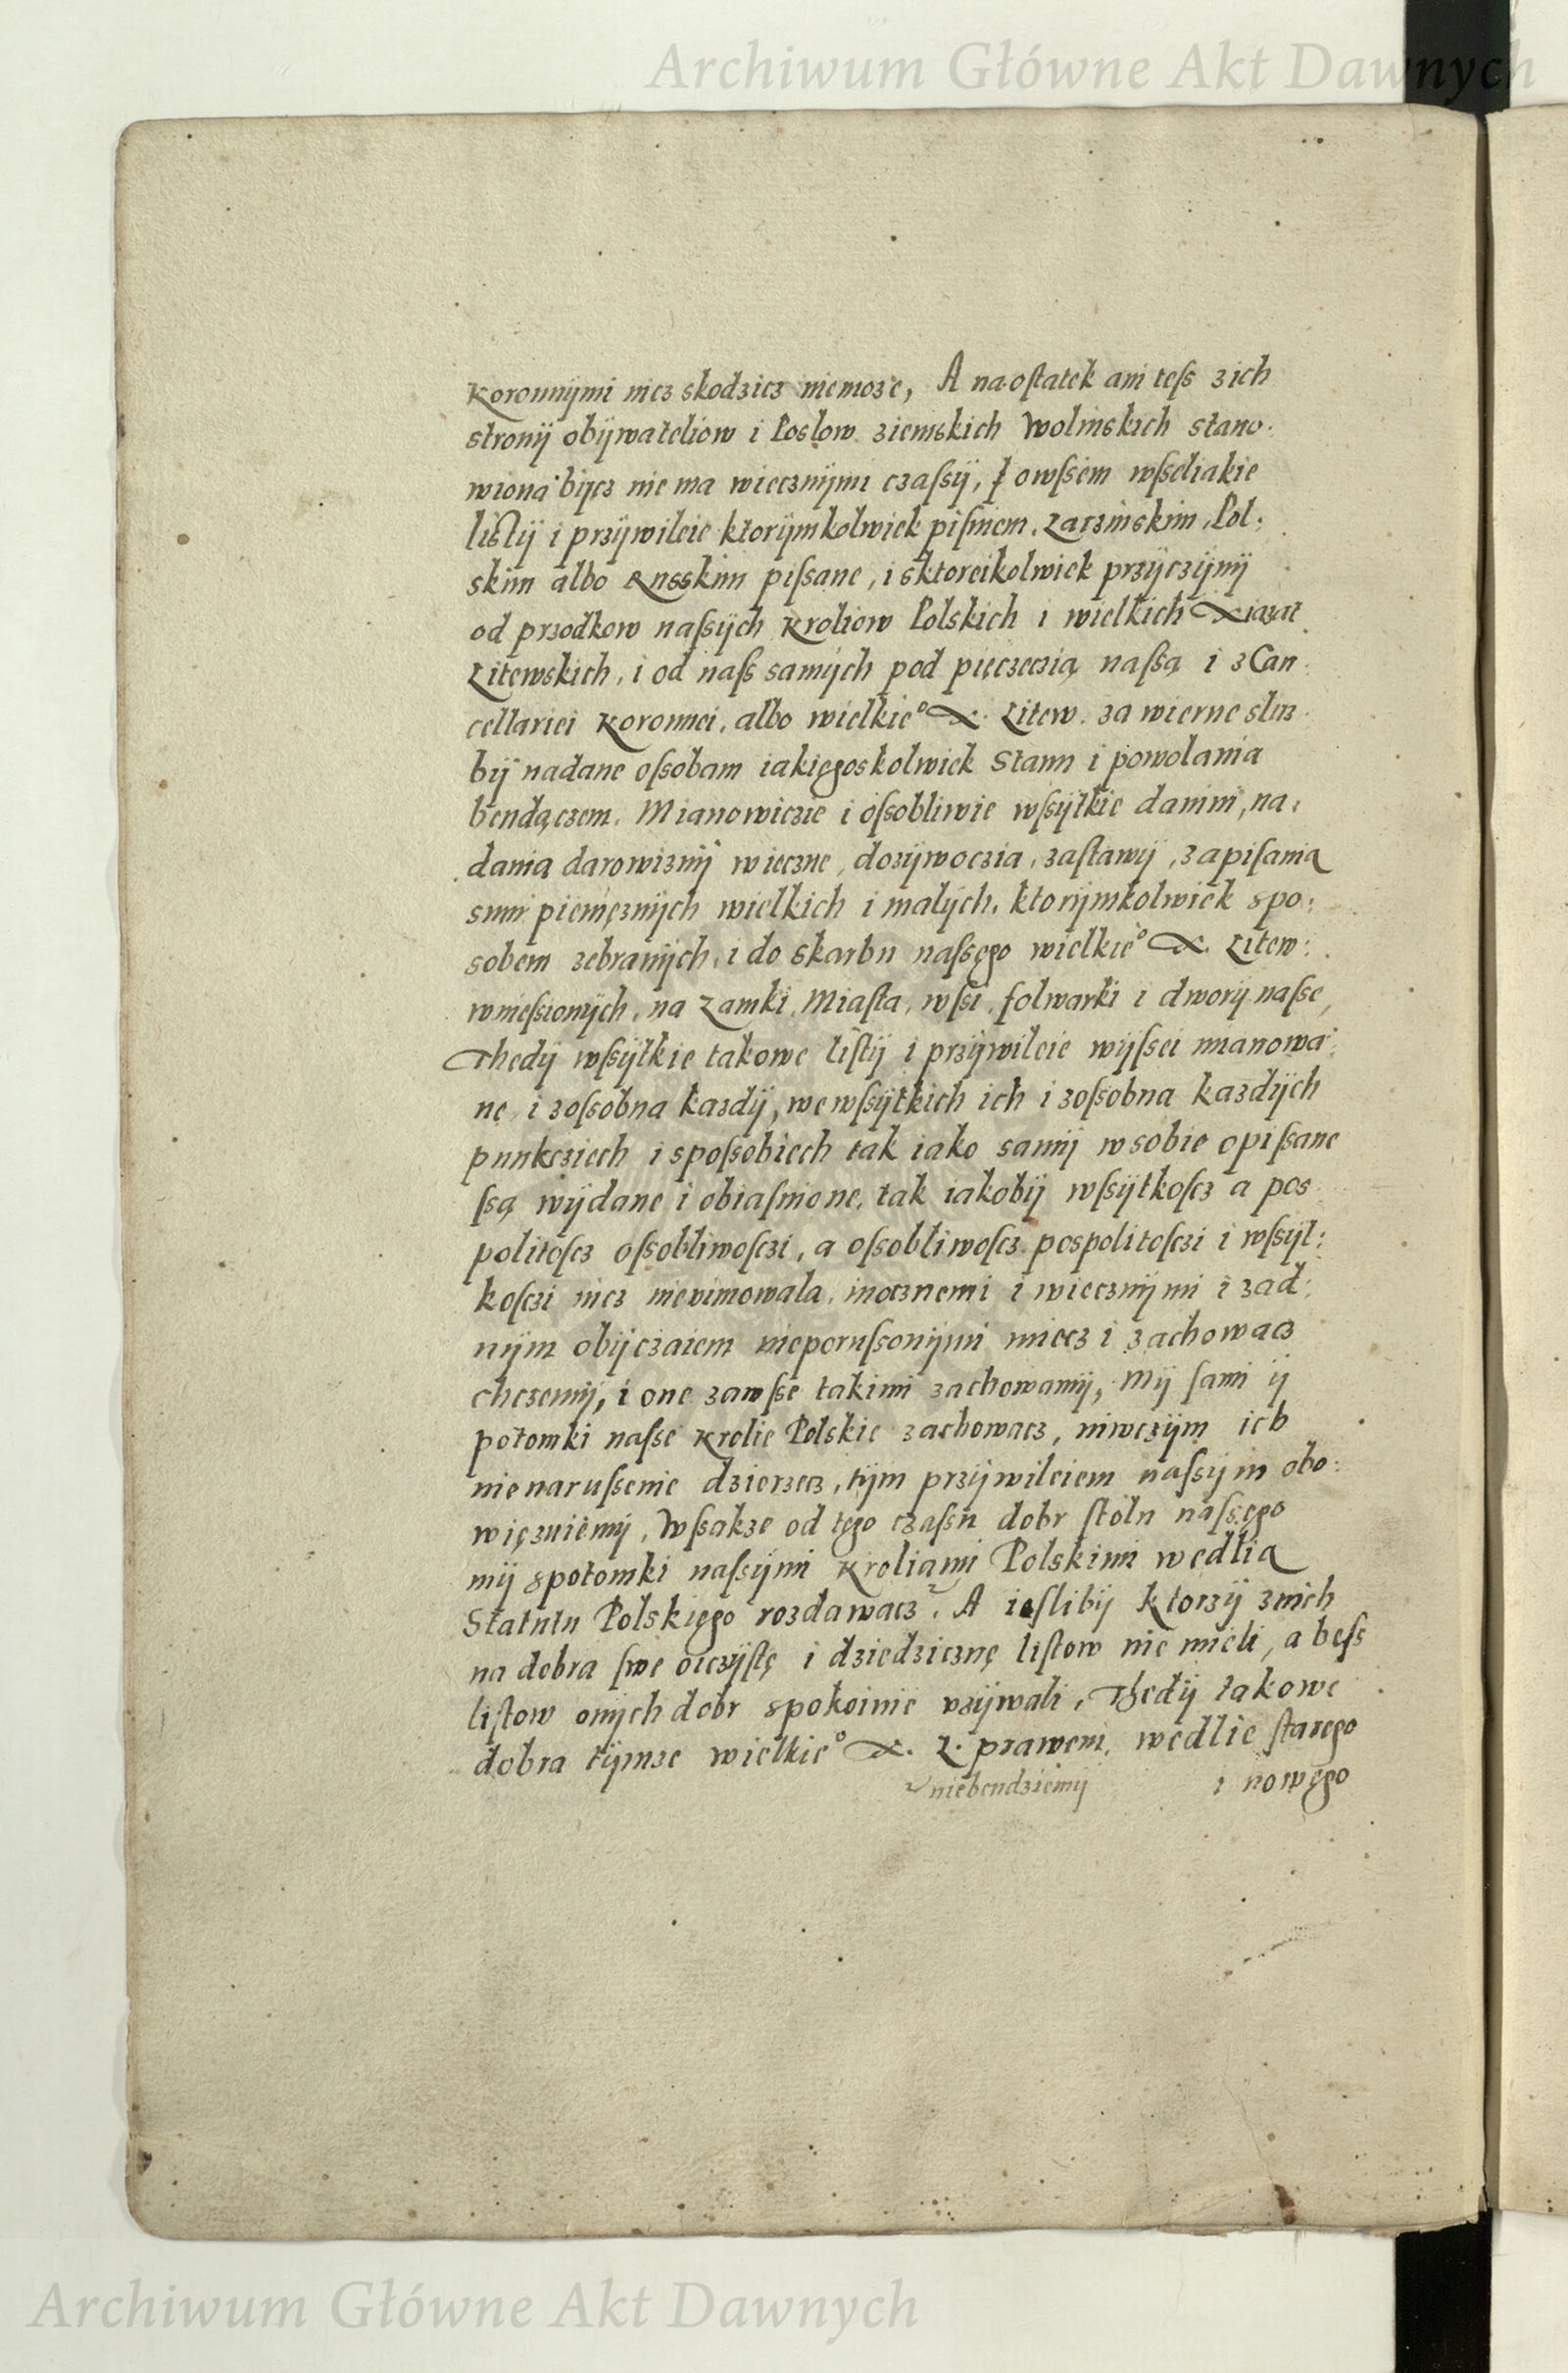 Archiwum Główne Akt Dawnych
Koronnÿmi nicz skodzicz niemoze, A na ostatek ani tess z ich
stronÿ obÿwateliow i Poslow ziemskich Wolinskich stano:
wiona bÿcz nie ma wiecznÿmi czassÿ, I owssem wsseliakie
listÿ i przÿwileie ktorÿmkolwiek pismem, Laczinskim, Pol:
skim albo Russkim pissane, i sktoreikolwiek przÿczÿnÿ
od przodkow nassÿch Kroliow Polskich i wielkich Xiazat
Litewskich, i od nass samÿch pod pięczęczią nassą i z Can:
cellariei Koronnei, albo wielkie° X. Litew. za wierne sluz:
bÿ nadane ossobam iakięgoskolwiek Stanu i powolania
bendączem. Mianowiczie i ossobliwie wssÿtkie danini, na:
dania darowiznÿ wieczne, dozÿwoczia, zastawÿ, zapisania
sum pienięznÿch wielkich i malÿch, ktorÿmkolwiek spo:
sobem zebranÿch, i do skarbu nassęgo wielkie° X. Litew:
wniessionÿch, na Zamki, Miasta, wssi, folwarki i dworÿ nasse,
Thedÿ wssÿtkie takowe listÿ i przÿwileie wÿssei mianowa:
ne, i zossobna kazdÿ, we wssÿtkich ich i zossobna kazdÿch
punkcziech i spossobiech tak iako samÿ w sobie opissane
ssą wÿdane i obiasnione, tak iakobÿ wssÿtkoscz a pos
politoscz ossobliwosczi, a ossobliwoscz pospolitosczi i wssÿt:
kosczi nicz nievimowala, mocznemi i wiecznÿmi i zad:
nÿm obÿczaiem nieporussonÿmi miecz i zachowacz
chczemÿ, i one zawsse takimi zachowamÿ, Mÿ sami ÿ
potomki nasse Krolie Polskie zachowacz, niwczÿm ich
nienarussenie dzierzecz, tÿm przÿwileiem nassÿm obo:
więzuiemÿ, Wssakze od tęgo czassu dobr stolu nassęgo
mÿ spotomki nassÿmi Kroliami Polskimi wedlia
Statutu Polskięgo rozdawacz. A iesslibÿ ktorzÿ znich
na dobra swe oiczÿstę i dziedzicznę listow nie mieli, a bess
listow onÿch dobr spokoinie vzÿwali, Thedÿ takowe
dobra tÿmze wielkie° X. L. prawem, wedlie starego
niebendziemÿ i nowęgo
Archiwum Główne Akt Dawnych